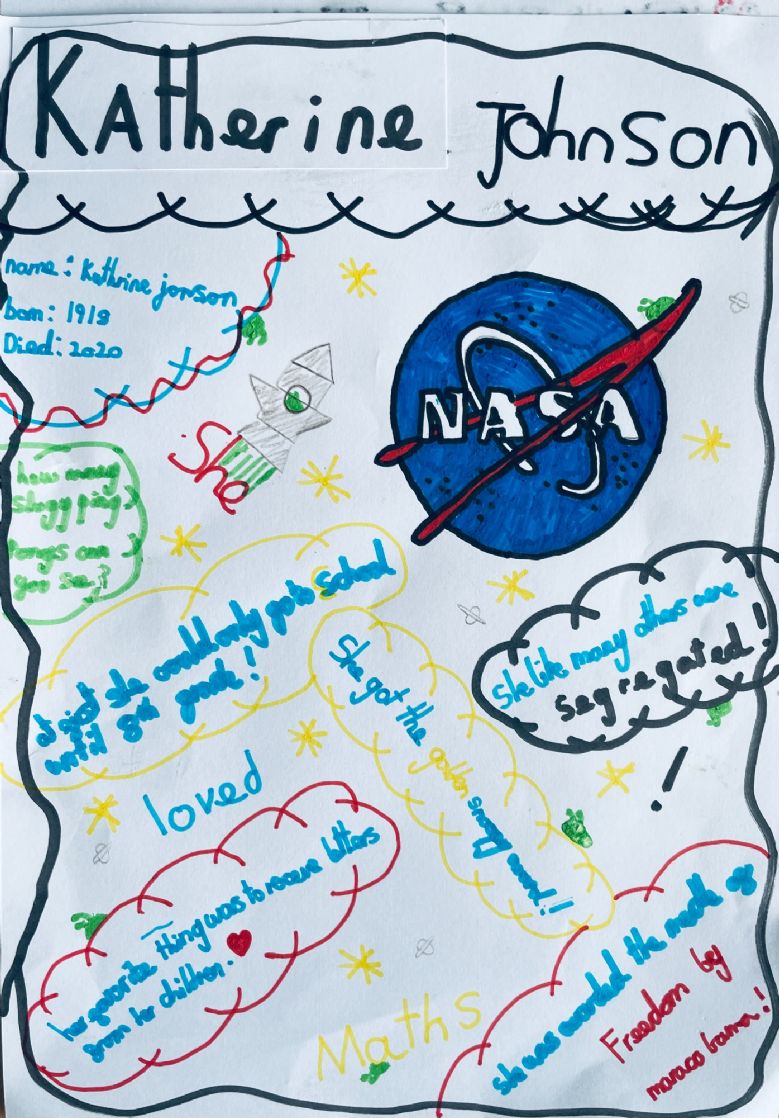 Katherine Johnson
name: Kathrine jonson
born: 1918
Died: 2020
NASA
She
how many
ping
can
you see?
at first she could only go to School
until grade!
She like many others were
segregated!
She got the
loved
!
her favorite thing was to receive letters
from her children.
she was aworded the medle of
Freedom by
maraco bama!
Maths